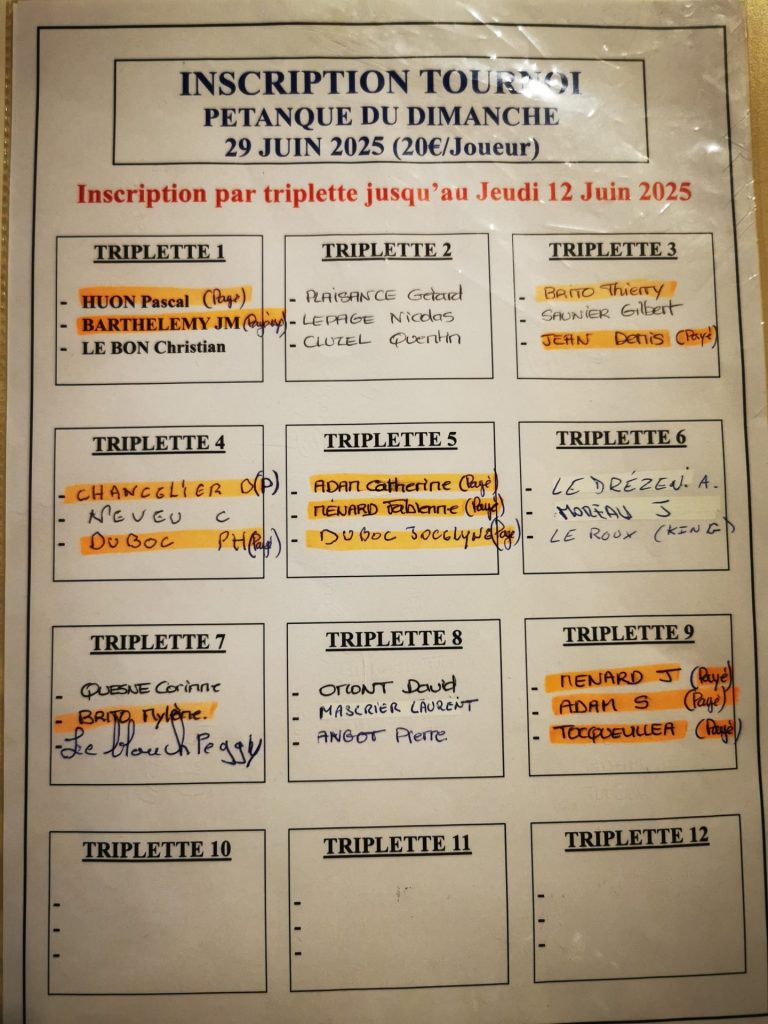 INSCRIPTION TOURNOI
PETANQUE DU DIMANCHE
29 JUIN 2025 (20€/Joueur)
Inscription par triplette jusqu'au Jeudi 12 Juin 2025
TRIPLETTE 1
- HUON Pascal (Payé)
- BARTHELEMY JM
- LE BON Christian
TRIPLETTE 2
- PLAISANCE Gérard
- LEPAGE Nicolas
- CLUZEL Quentin
TRIPLETTE 3
- BRITO Thierry
- SAUNIER Gilbert
- JEAN Denis (Payé)
TRIPLETTE 4
- CHANCELIER D(P)
- NEVEU C
- DUBOC PH (Payé)
TRIPLETTE 5
- ADAM Catherine (Payé)
- MENARD Fabienne (Payé)
- DUBOC JOCELYNE (Payé)
TRIPLETTE 6
- LE DRÉZEN. A.
- MOREAU J
- LE ROUX (KING)
TRIPLETTE 7
- QUESNE Corinne
- BRITO Mylène.
- Le blouch Peggy
TRIPLETTE 8
- OMONT David
- MASCRIER LAURENT
- ANGOT Pierre.
TRIPLETTE 9
- MENARD J (Payé)
- ADAM S (Payé)
- (Payé)
TRIPLETTE 10
-
-
-
TRIPLETTE 11
-
-
-
TRIPLETTE 12
-
-
-